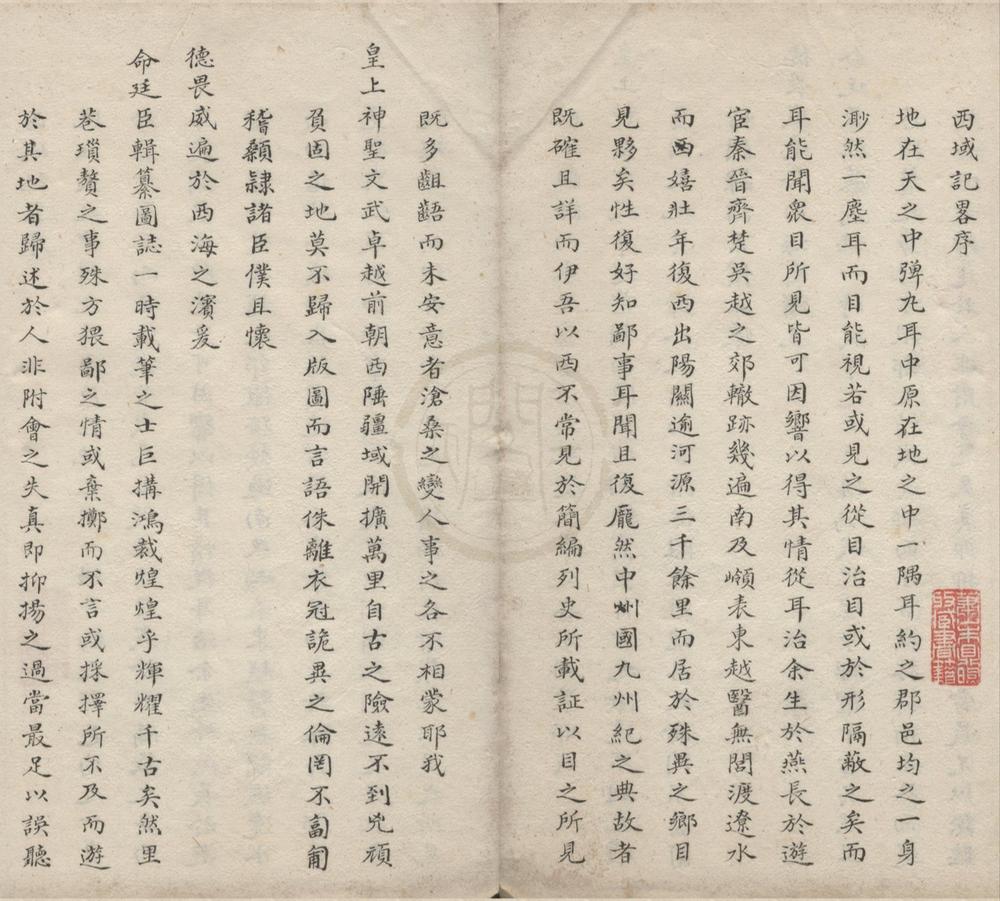 西域記畧序
地在天之中弹丸耳中原在地之中一隅耳約之郡邑均之一身
渺然一塵耳而目能視若或見之從目治目或於形隔蔽之矣而
耳能聞眾目所見皆可因響以得其情從耳治余生於燕長於遊
宦秦晉齊楚吳越之郊轍跡幾遍南及嶺表東越醫無閭渡遼水
而西嬉壯年復西出陽關逾河源三千餘里而居於殊異之鄉目
見夥矣性復好知鄙事耳聞且復龐然中州國九州紀之典故者
既確且詳而伊吾以西不常見於簡編列史所載証以目之所見
既多齟齬而未安意者滄桑之變人事之各不相蒙耶我
皇上神聖文武卓越前朝西陲疆域開擴萬里自古之險遠不到兇頑
負固之地莫不歸入版圖而言語侏離衣冠詭異之倫罔不匍匐
稽顙隷諸臣僕且懷
德畏威遍於西海之濱爰
命廷臣輯纂圖誌一時載筆之士巨搆鴻裁煌煌乎輝耀千古矣然里
巷瑣贅之事殊方猥鄙之情或棄擲而不言或採擇所不及而遊
於其地者歸述於人非附會之失真即抑揚之過當最足以誤聽